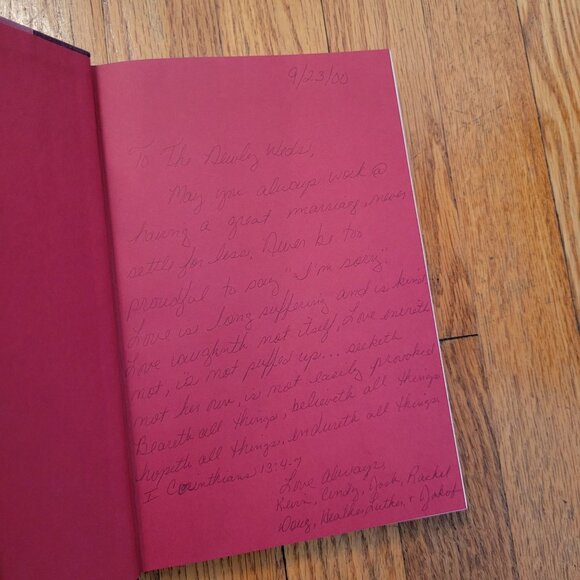 9/23/00
To The Newly Weds,
May you always work @
having a great marriage, never
settle for less. Never be too
proudful to say "I'm sorry".
Love is long suffering and is kind,
Love vaughnth not itself, Love envieth
not, is not puffed up... seeketh
not her own, is not easily provoked
Beareth all things, believeth all things
hopeth all things, endureth all things
I Corinthians 13:4-7
Love Always,
Kevin, Cindy, Josh, Rachel
Doug, Heather, Luther, +